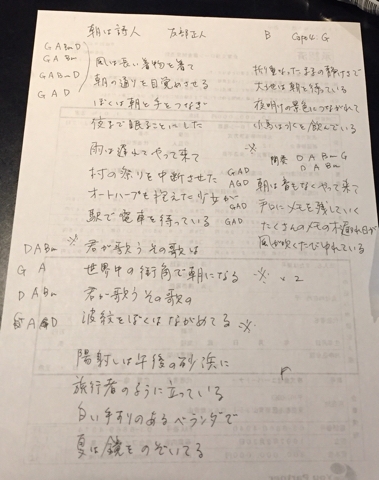 朝は詩人 友部正人 B Capo4 G
G A Bm D
G A Bm
G A Bm D
G A D
風は長い着物を着て
朝の通りを目覚めさせる
ぼくは朝と手をつなぎ
夜まで眠ることにした
雨は遅れてやって来て
村の祭りを中断させた
オートハープを抱えた少女が
駅で電車を待っている
GAD
AGD
GAD
GAD
D A Bm ※ 君が歌うその歌は
G A 世界中の街角で朝になる ※ ×2
D A Bm 君が歌うその歌の
G A D 波紋をぼくはながめてる ※
陽射しは午後の砂浜に
旅行者のように立っている
白い手すりのあるベランダで
夏は鏡をのぞいてる
折重なったままの静けさで
大地は朝を待っている
夜明けの景色につながれて
小鳥は水を飲んでいる
※
間奏 D A Bm G
D A Bm
朝は音もなくやって来て
戸口にメモを残していく
たくさんのメモの木漏れ日が
風が吹くたびゆれている